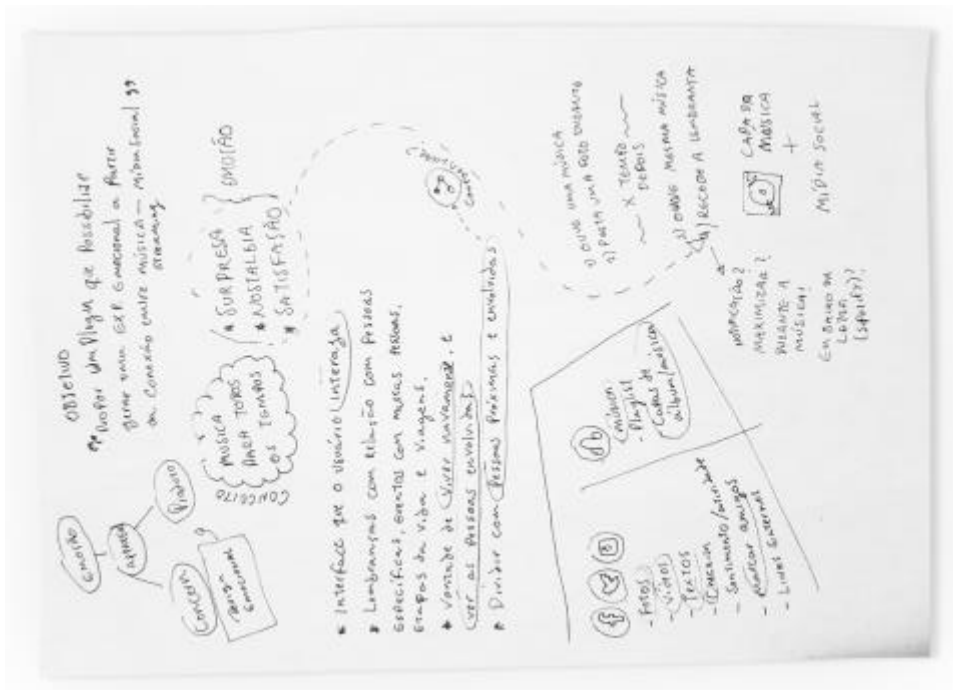 OBJETIVO
"Propor um Plugin que Possibilize
gerar uma EXP. Emocional a Partir
da Conexão entre música — mídia social"
streaming
EMOÇÃO
APEGO
PRODUTO
CONCEITO
Design
Emocional
CONCEITO
MÚSICA
PARA TODOS
OS TEMPOS
SURPRESA
NOSTALGIA
SATISFAÇÃO
EMOÇÃO
Interface que o usuário interaja
Lembranças com relação com Pessoas
Específicas, eventos com muitas Pessoas,
Etapas da vida e viagens.
Vontade de viver novamente, e
ver as Pessoas envolvidas
Dividir com Pessoas Próximas e envolvidas
1) OUVE UMA MÚSICA
2) POSTA UMA FOTO DURANTE
X TEMPO
DEPOIS
3) OUVE MESMA MÚSICA
4) RECORDA A LEMBRANÇA
NOTIFICAÇÃO?
MAXIMIZAR?
DURANTE A
MÚSICA!
EM BAIXO DA
(SPOTIFY)?
CAPA DA
MÚSICA
+
MÍDIA SOCIAL
- FOTOS
- VÍDEOS
- TEXTOS
- CHECKIN
- Sentimento/atividade
- Marcar amigos
- LINKS EXTERNOS
- Música
- Playlist
- Capas de
álbum/música